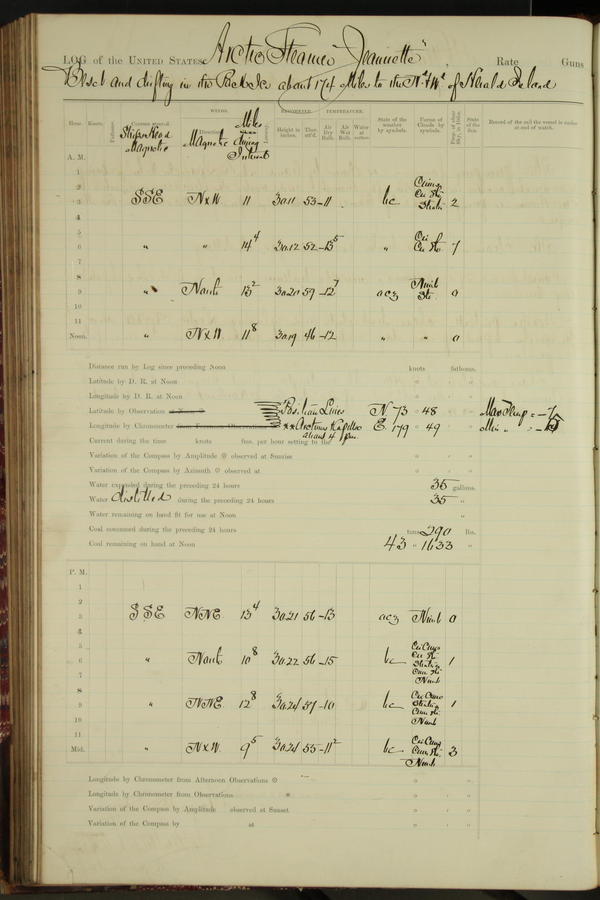 LOG of the UNITED STATES Arctic Steamer "Jeannette" Rate Guns
Beset and drifting in the Pack Ice about 174 Miles to the N & Wd of Herald Island
WINDS. BAROMETER. TEMPERATURE.
Hour. Knots. Courses steered. Ship's Head Magnetic Direction Magnetic Miles during Interval Height in inches. Ther. att'd. Air Dry Bulb. Air Wet Bulb. Water at surface. State of the weather by symbols. Forms of Clouds by symbols. State of the Sea. Record of the sail the vessel is under at end of watch.
A. M.
1
2
3 SSE N x W 11 30.11 53 -11 bc Cum Cir Str Strati 2
4
5
6 " " 14⁴ 30.12 52 -13⁵ " Cir Cir Str 7
7
8
9 " North 13² 30.20 59 -12⁷ acz Nimb Str 0
10
11
Noon. " N x W 11⁸ 30.19 46 -12 " " 0
Distance run by Log since preceding Noon knots fathoms.
Latitude by D. R. at Noon
Longitude by D. R. at Noon
Latitude by Observation Position Lines N 73 ° 48 Max Temp =
Longitude by Chronometer from Forenoon Observations xx Arcturus Capella E. 179 ° 49 Min " =
about 4 pm.
Current during the time knots fms. per hour setting to the
Variation of the Compass by Amplitude observed at Sunrise
Variation of the Compass by Azimuth observed at
Water expended during the preceding 24 hours 35 gallons.
Water distilled during the preceding 24 hours 35 "
Water remaining on hand fit for use at Noon "
Coal consumed during the preceding 24 hours tons 290 lbs.
Coal remaining on hand at Noon 43 " 1633 "
P. M.
1
2
3 SSE NNE 13⁴ 30.21 56 -13 acz Nimb 0
4
5
6 " North 10⁸ 30.22 56 -15 bc Cir Cum Cir Str Strati Cum Str Nimb 1
7
8
9 " NNE. 12⁸ 30.24 57 -10 bc Cir Cum Strati Cum Str. Nimb 1
10
11
Mid. " N x W. 9⁵ 30.24 55 -11² bc Cir Cum Cum Str Nimb 3
Longitude by Chronometer from Afternoon Observations
Longitude by Chronometer from Observations
Variation of the Compass by Amplitude observed at Sunset
Variation of the Compass by at